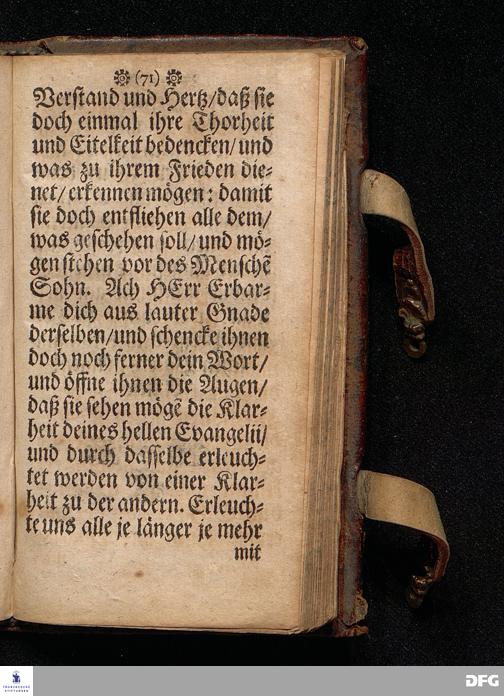 (71)
Verstand und Hertz/daß sie
doch einmal ihre Thorheit
und Eitelkeit bedencken/und
was zu ihrem Frieden die⸗
net/erkennen mögen: damit
sie doch entfliehen alle dem/
was geschehen soll/und mö⸗
gen stehen vor des Menschē
Sohn. Ach HErr Erbar⸗
me dich aus lauter Gnade
derselben/und schencke ihnen
doch noch ferner dein Wort/
und öffne ihnen die Augen/
daß sie sehen mögē die Klar⸗
heit deines hellen Evangelii/
und durch dasselbe erleuch⸗
tet werden von einer Klar⸗
heit zu der andern. Erleuch⸗
te uns alle je länger je mehr
mit
FRANCKESCHE STIFTUNGEN
DFG